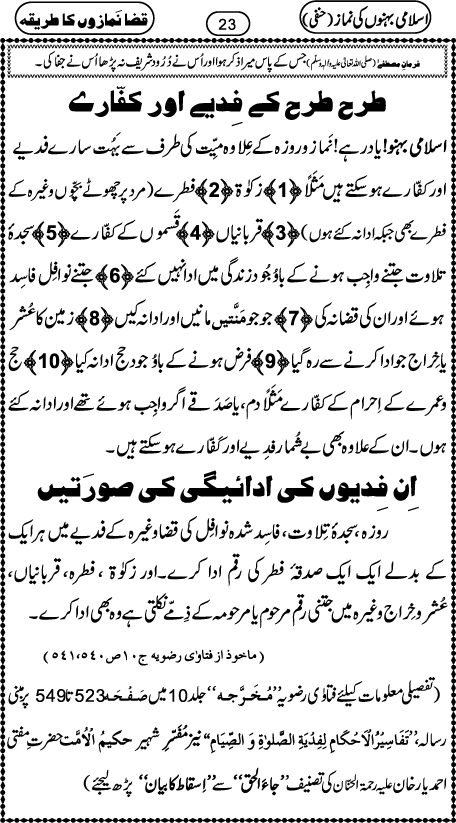 اسلامی بہنوں کی نماز (حنفی)
23
قضا نمازوں کا طریقہ
فرمانِ مصطفٰے (صلی اللہ تعالیٰ علیہ واٰلہٖ وسلم) جس کے پاس میرا ذکر ہوا اور اُس نے دُرُود شریف نہ پڑھا اُس نے جفا کی۔
طرح طرح کے فِدیے اور کفّارے
اسلامی بہنو! یاد رہے! نَماز و روزہ کے عِلاوہ میِّت کی طرف سے بَہُت سارے فدیے
اور کفّارے ہوسکتے ہیں مَثَلاً ﴿1﴾ زکوٰۃ ﴿2﴾ فطرے (مرد پر چھوٹے بچّوں وغیرہ کے
فطرے بھی جبکہ ادا نہ کئے ہوں) ﴿3﴾ قربانیاں ﴿4﴾ قَسموں کے کفّارے ﴿5﴾ سجدۂ
تلاوت جتنے واجِب ہونے کے باوُجُود زندگی میں ادا نہیں کئے ﴿6﴾ جتنے نوافِل فاسِد
ہوئے اور ان کی قضا نہ کی ﴿7﴾ جو جو مَنَّتیں مانیں اور ادا نہ کیں ﴿8﴾ زمین کا عُشر
یا خِراج جو ادا کرنے سے رہ گیا ﴿9﴾ فرض ہونے کے باوُجود حج ادا نہ کیا ﴿10﴾ حج
وعمرے کے اِحرام کے کفّارے مَثَلاً دم، یا صَدَقے اگر واجِب ہوئے تھے اور ادا نہ کئے
ہوں۔ ان کے علاوہ بھی بے شُمار فِدیے اور کفّارے ہو سکتے ہیں۔
اِن فِدیوں کی ادائیگی کی صورَتیں
روزہ، سجدۂ تِلاوت، فاسِد شدہ نوافِل کی قضا وغیرہ کے فدیے میں ہر ایک
کے بدلے ایک ایک صدقۂ فطر کی رقم ادا کرے۔ اور زکوٰۃ، فطرہ، قربانیاں،
عُشر و خِراج وغیرہ میں جتنی رقم مرحوم یا مرحومہ کے ذِمّے نکلتی ہے وہ بھی ادا کرے۔
(ماخوذ از فتاوٰی رضویہ ج۱۰ ص۵۴۰، ۵۴۱)
(تفصیلی معلومات کیلئے فتاوٰی رضویہ ’’مُخَرَّجہ‘‘ جلد 10 میں صَفْحَہ 523 تا 549 پر مبنی
رسالہ، ’’تَفَاسِیْرُ الْاَحْکَامِ لِفِدْیَۃِ الصَّلٰوۃِ وَ الصِّیَام‘‘ نیز مُفَسِّرِ شہیر حکیمُ الْاُمَّت حضرتِ مفتی
احمد یار خان علیہ رحمۃ الحنّان کی تصنیف ’’جاءَ الْحَق‘‘ سے ’’اِسقاط کا بیان‘‘ پڑھ لیجئے)